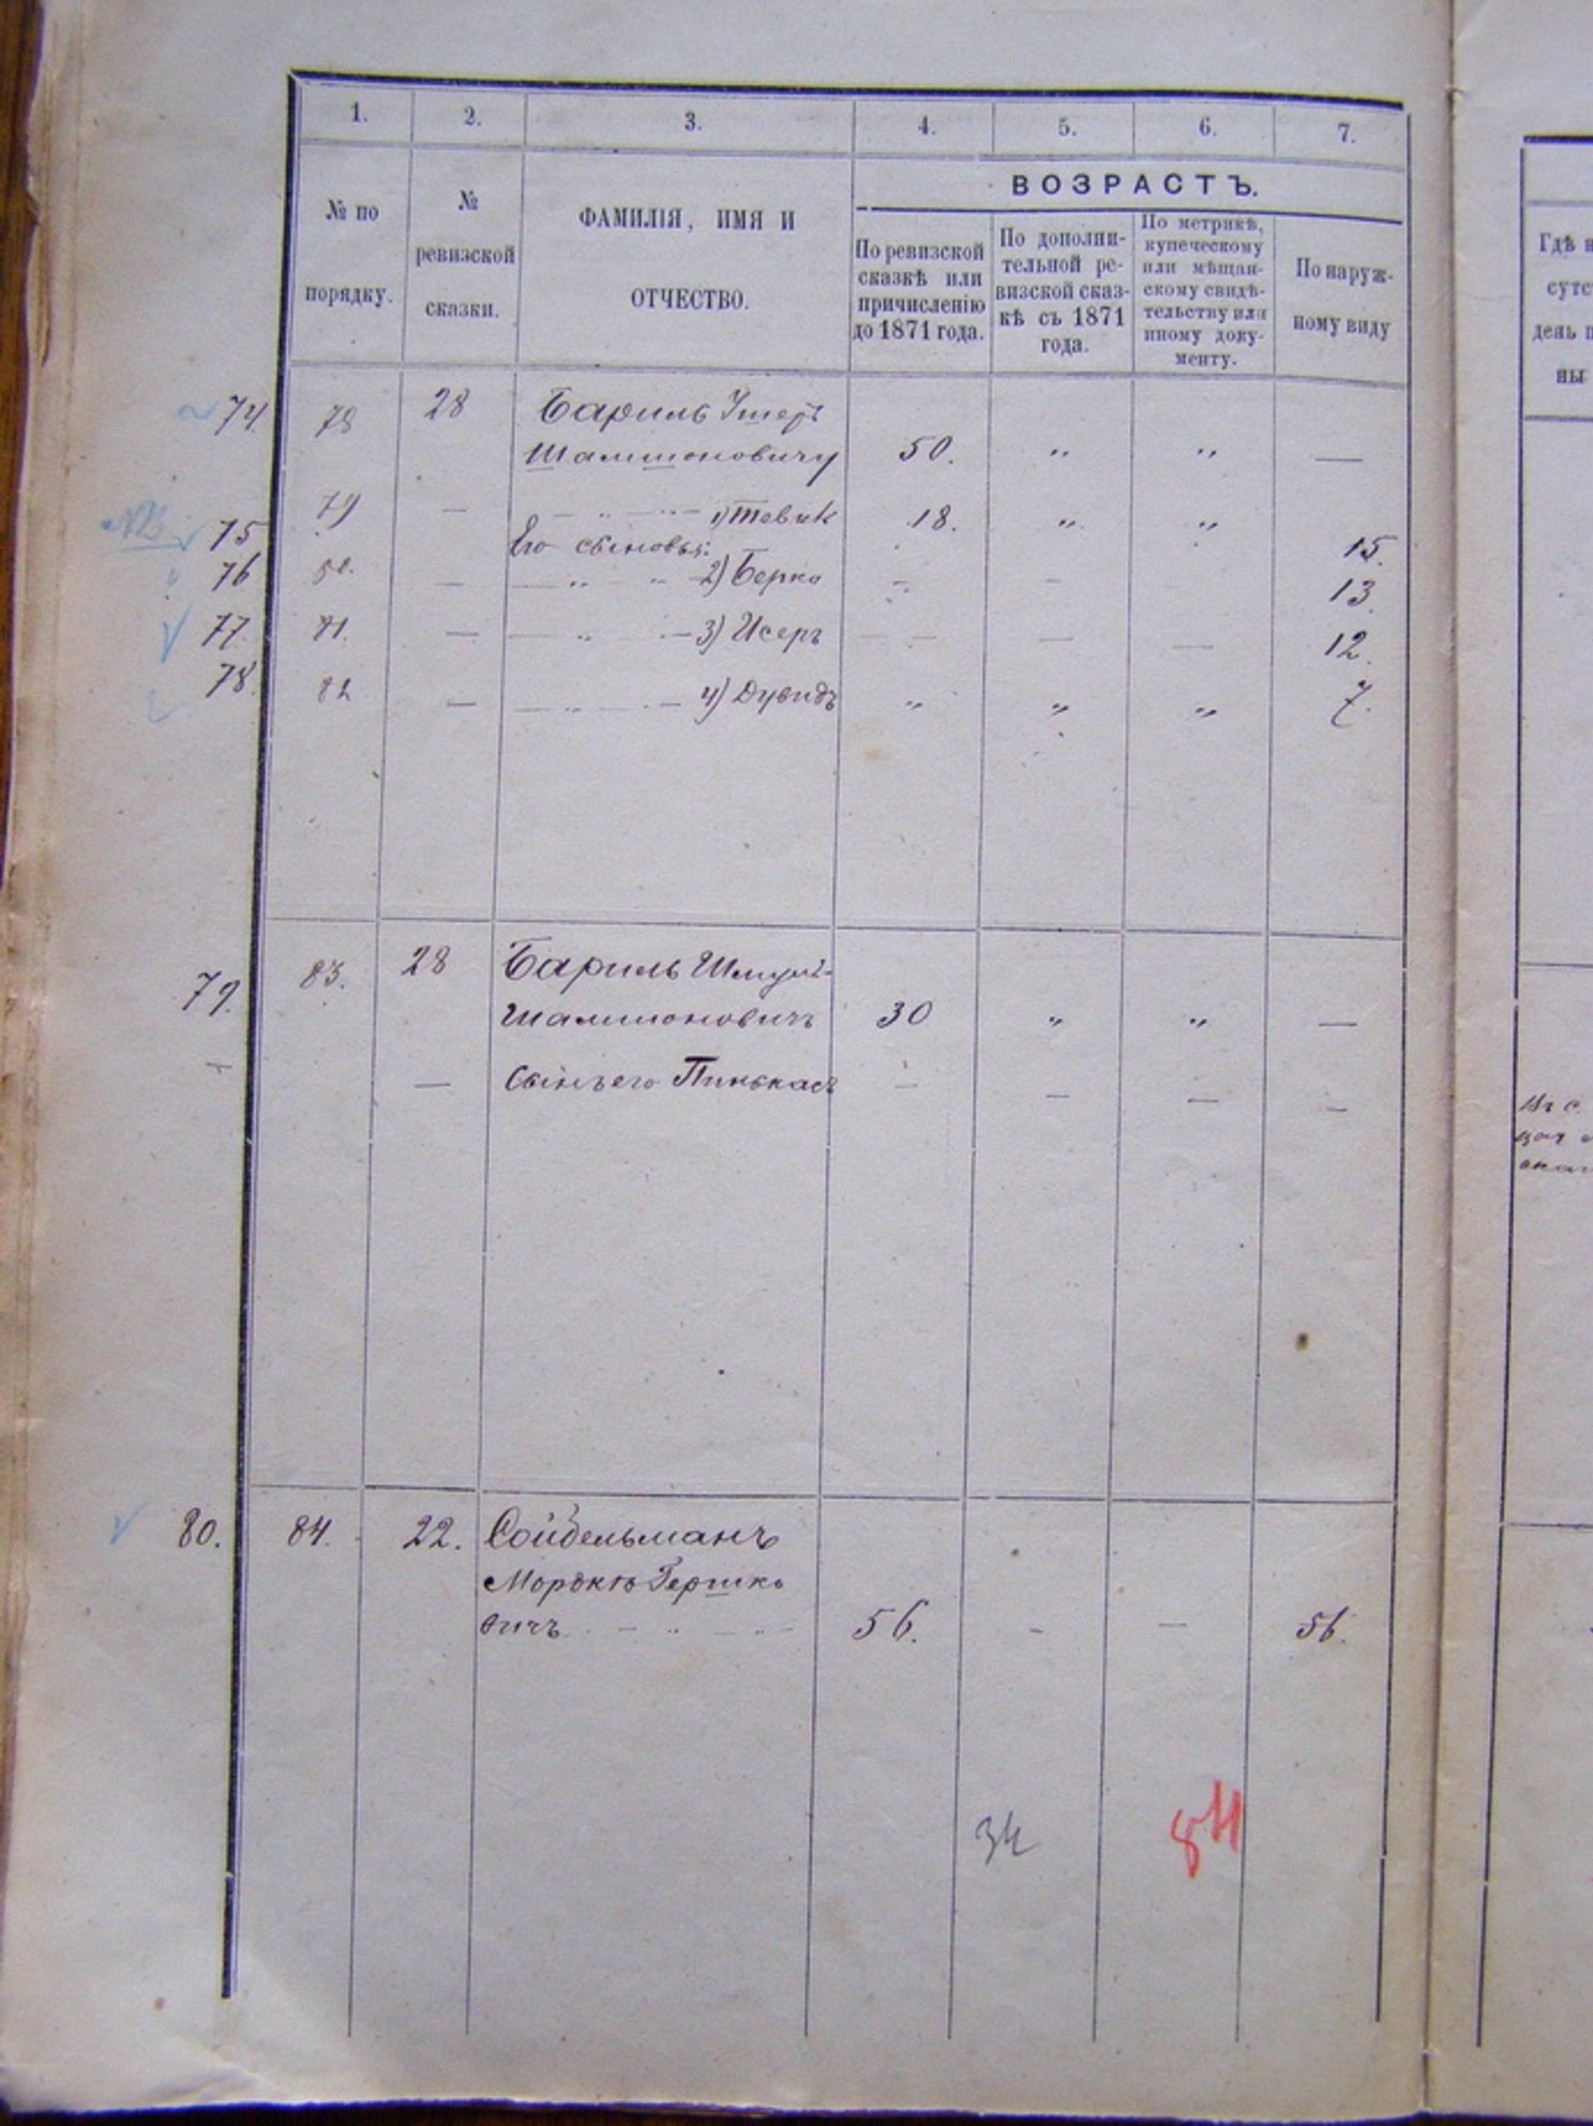 1. 2. 3. 4. 5. 6. 7.
№ по порядку.
№ ревизской сказки.
ФАМИЛІЯ, ИМЯ И
ОТЧЕСТВО.
ВОЗРАСТЪ.
По ревизской
сказкѣ или
причисленію
до 1871 года.
По дополни-
тельной ре-
визской сказ-
кѣ съ 1871
года.
По метрикѣ,
купеческому
или мѣщан-
скому свидѣ-
тельству или
иному доку-
менту.
По наруж-
ному виду
Гдѣ
день
ны
74 78 28 Бариль Ушеръ
Шамшоновичу 50. „ „ —
NB 75 79 — — „ — „ — 1) Тевик 18. „ „
Его сыновья: 15.
76 — — „ „ — 2) Берко — — 13.
77 81. — — „ — 3) Исеръ — — — — 12.
78. 82 — — „ — „ — 4) Дувидъ „ „ „ 7.
79. 83. 28 Бариль Шмуль-
Шамшоновичъ 30 „ „ —
— — Сынъ его Пинькасъ — — — —
80. 84. 22. Сойбельманъ
Мордко Гершко
вичъ — „ — „ — 56. — — 56.
34 84